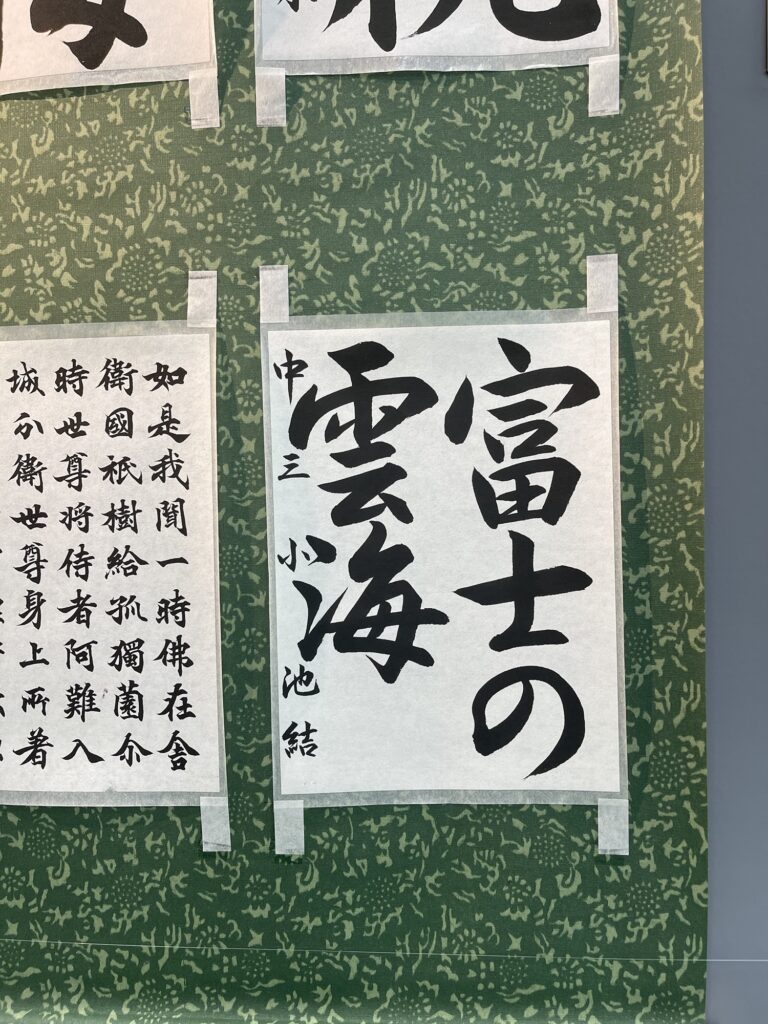 富士の
雲海
中三 小池結
如是我聞一時佛在舍
衛國祇樹給孤獨薗尒
時世尊将侍者阿難入
城分衛世尊身上所着